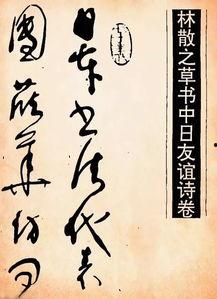 林散之草书中日友谊诗卷
日本书法代表
团莅华访问